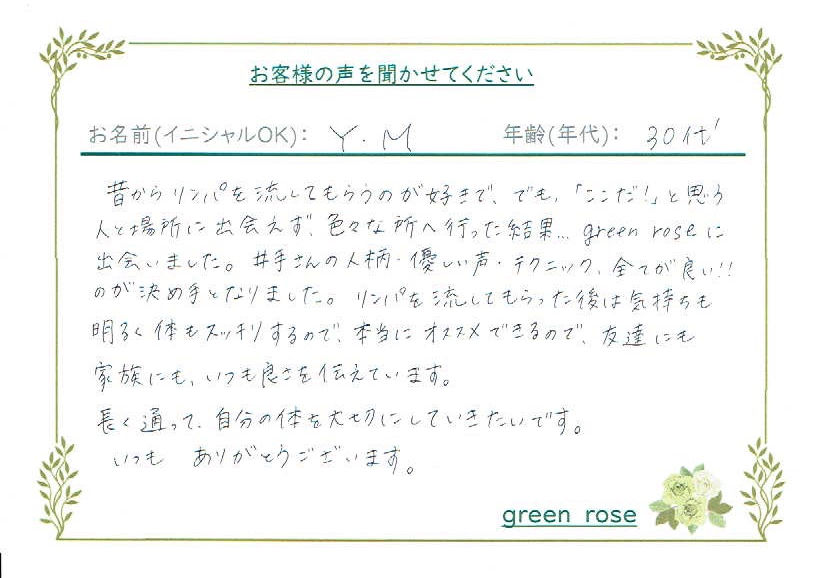 お客様の声を聞かせてください
お名前(イニシャルOK): Y.M 年齢(年代): 30代
昔からリンパを流してもらうのが好きで、でも、「ここだ!」と思う
人と場所に出会えず、色々な所へ行った結果… green roseに
出会いました。井手さんの人柄・優しい声・テクニック、全てが良い!!
のが決め手となりました。リンパを流してもらった後は気持ちも
明るく体もスッキリするので、本当にオススメできるので、友達にも
家族にも、いつも良さを伝えています。
長く通って、自分の体を大切にしていきたいです。
いつも ありがとうございます。
green rose